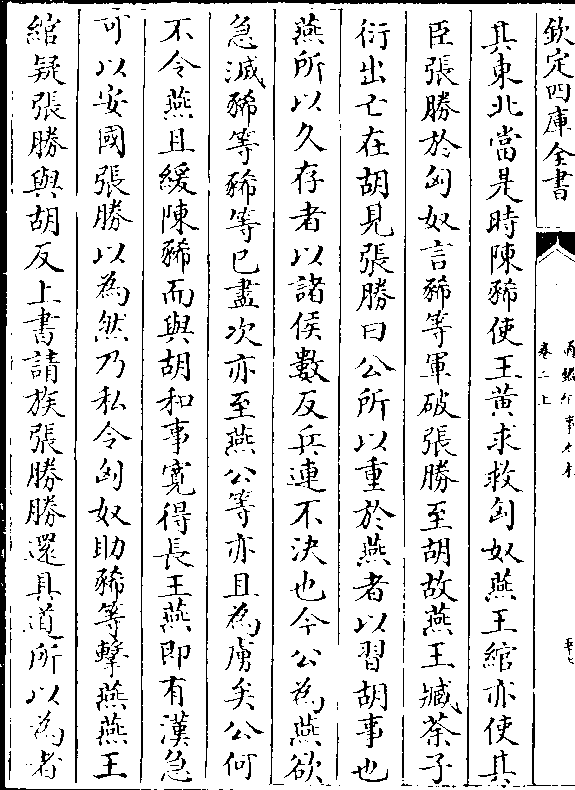 欽定四庫全書
卷二上
其東北當是時陳豨使王黄求救匈奴燕王綰亦使其
臣張勝於匈奴言豨等軍破張勝至胡故燕王臧荼子
衍出亡在胡見張勝曰公所以重於燕者以習胡事也
燕所以久存者以諸侯數反兵連不決也今公為燕欲
急滅豨等豨等已盡次亦至燕公等亦且為虜矣公何
不令燕且緩陳豨而與胡和事寛得長王燕即有漢急
可以安國張勝以為然乃私令匈奴助豨等擊燕燕王
綰疑張勝與胡反上書請族張勝勝還具道所以為者